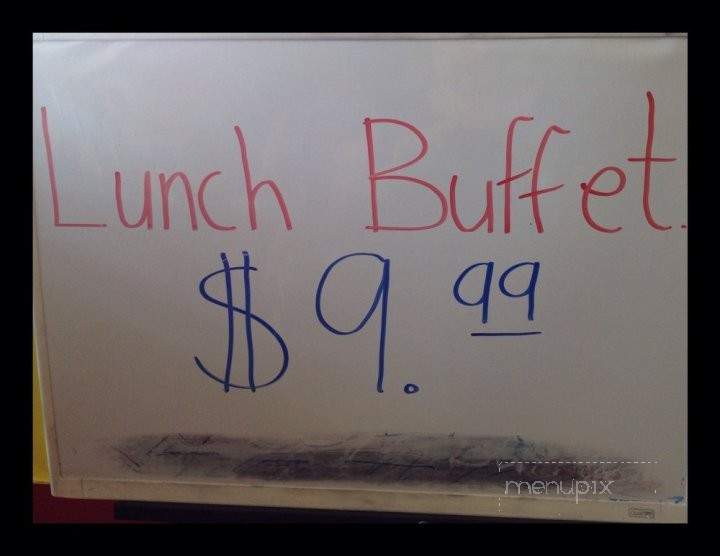 Lunch Buffet.
$9.99
menupix